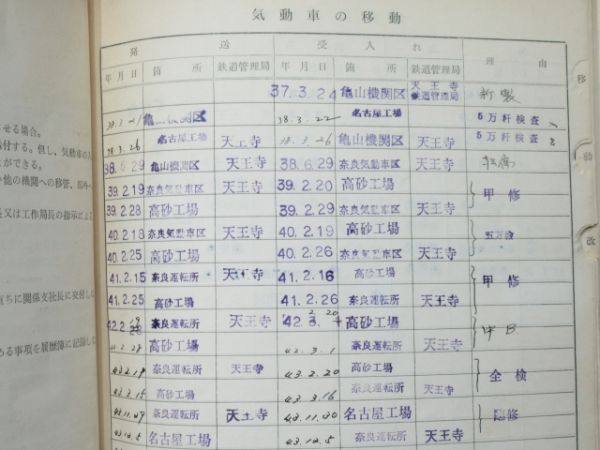 気動車の移動
発送 受入れ 理由
年月日 箇所 鉄道管理局 年月日 箇所 鉄道管理局
37.3.24 亀山機関区 天王寺鉄道管理局 新製
38.3.21 亀山機関区 38.3.22 名古屋工場 5万粁検査
38.3.26 名古屋工場 天王寺 38.3.26 亀山機関区 天王寺 5万粁検査
38.6.29 亀山機関区 天王寺 38.6.29 奈良気動車区 天王寺 転属
39.2.19 奈良気動車区 天王寺 39.2.20 高砂工場 甲修
39.2.28 高砂工場 39.2.29 奈良気動車区 天王寺
40.2.18 奈良気動車区 天王寺 40.2.19 高砂工場
40.2.25 高砂工場 40.2.26 奈良気動車区 天王寺
41.2.15 奈良運転所 天王寺 41.2.16 高砂工場 甲修
41.2.25 高砂工場 41.2.26 奈良運転所 天王寺
奈良運転所 天王寺 高砂工場
高砂工場 42.3.1 奈良運転所 天王寺
43.2.19 奈良運転所 天王寺 43.2.20 高砂工場 全検
43.3.15 高砂工場 43.3.16 奈良運転所 天王寺
43.11.29 奈良運転所 天王寺 43.11.30 名古屋工場
43.12.5 名古屋工場 43.12.5 奈良運転所 天王寺
させる場合。
付する。但し、気動車の
ができる。
他の機関への移管、部外
又は工作局長の指示によ
ちに関係支社長に交付し
る事項を履歴簿に記録し
改